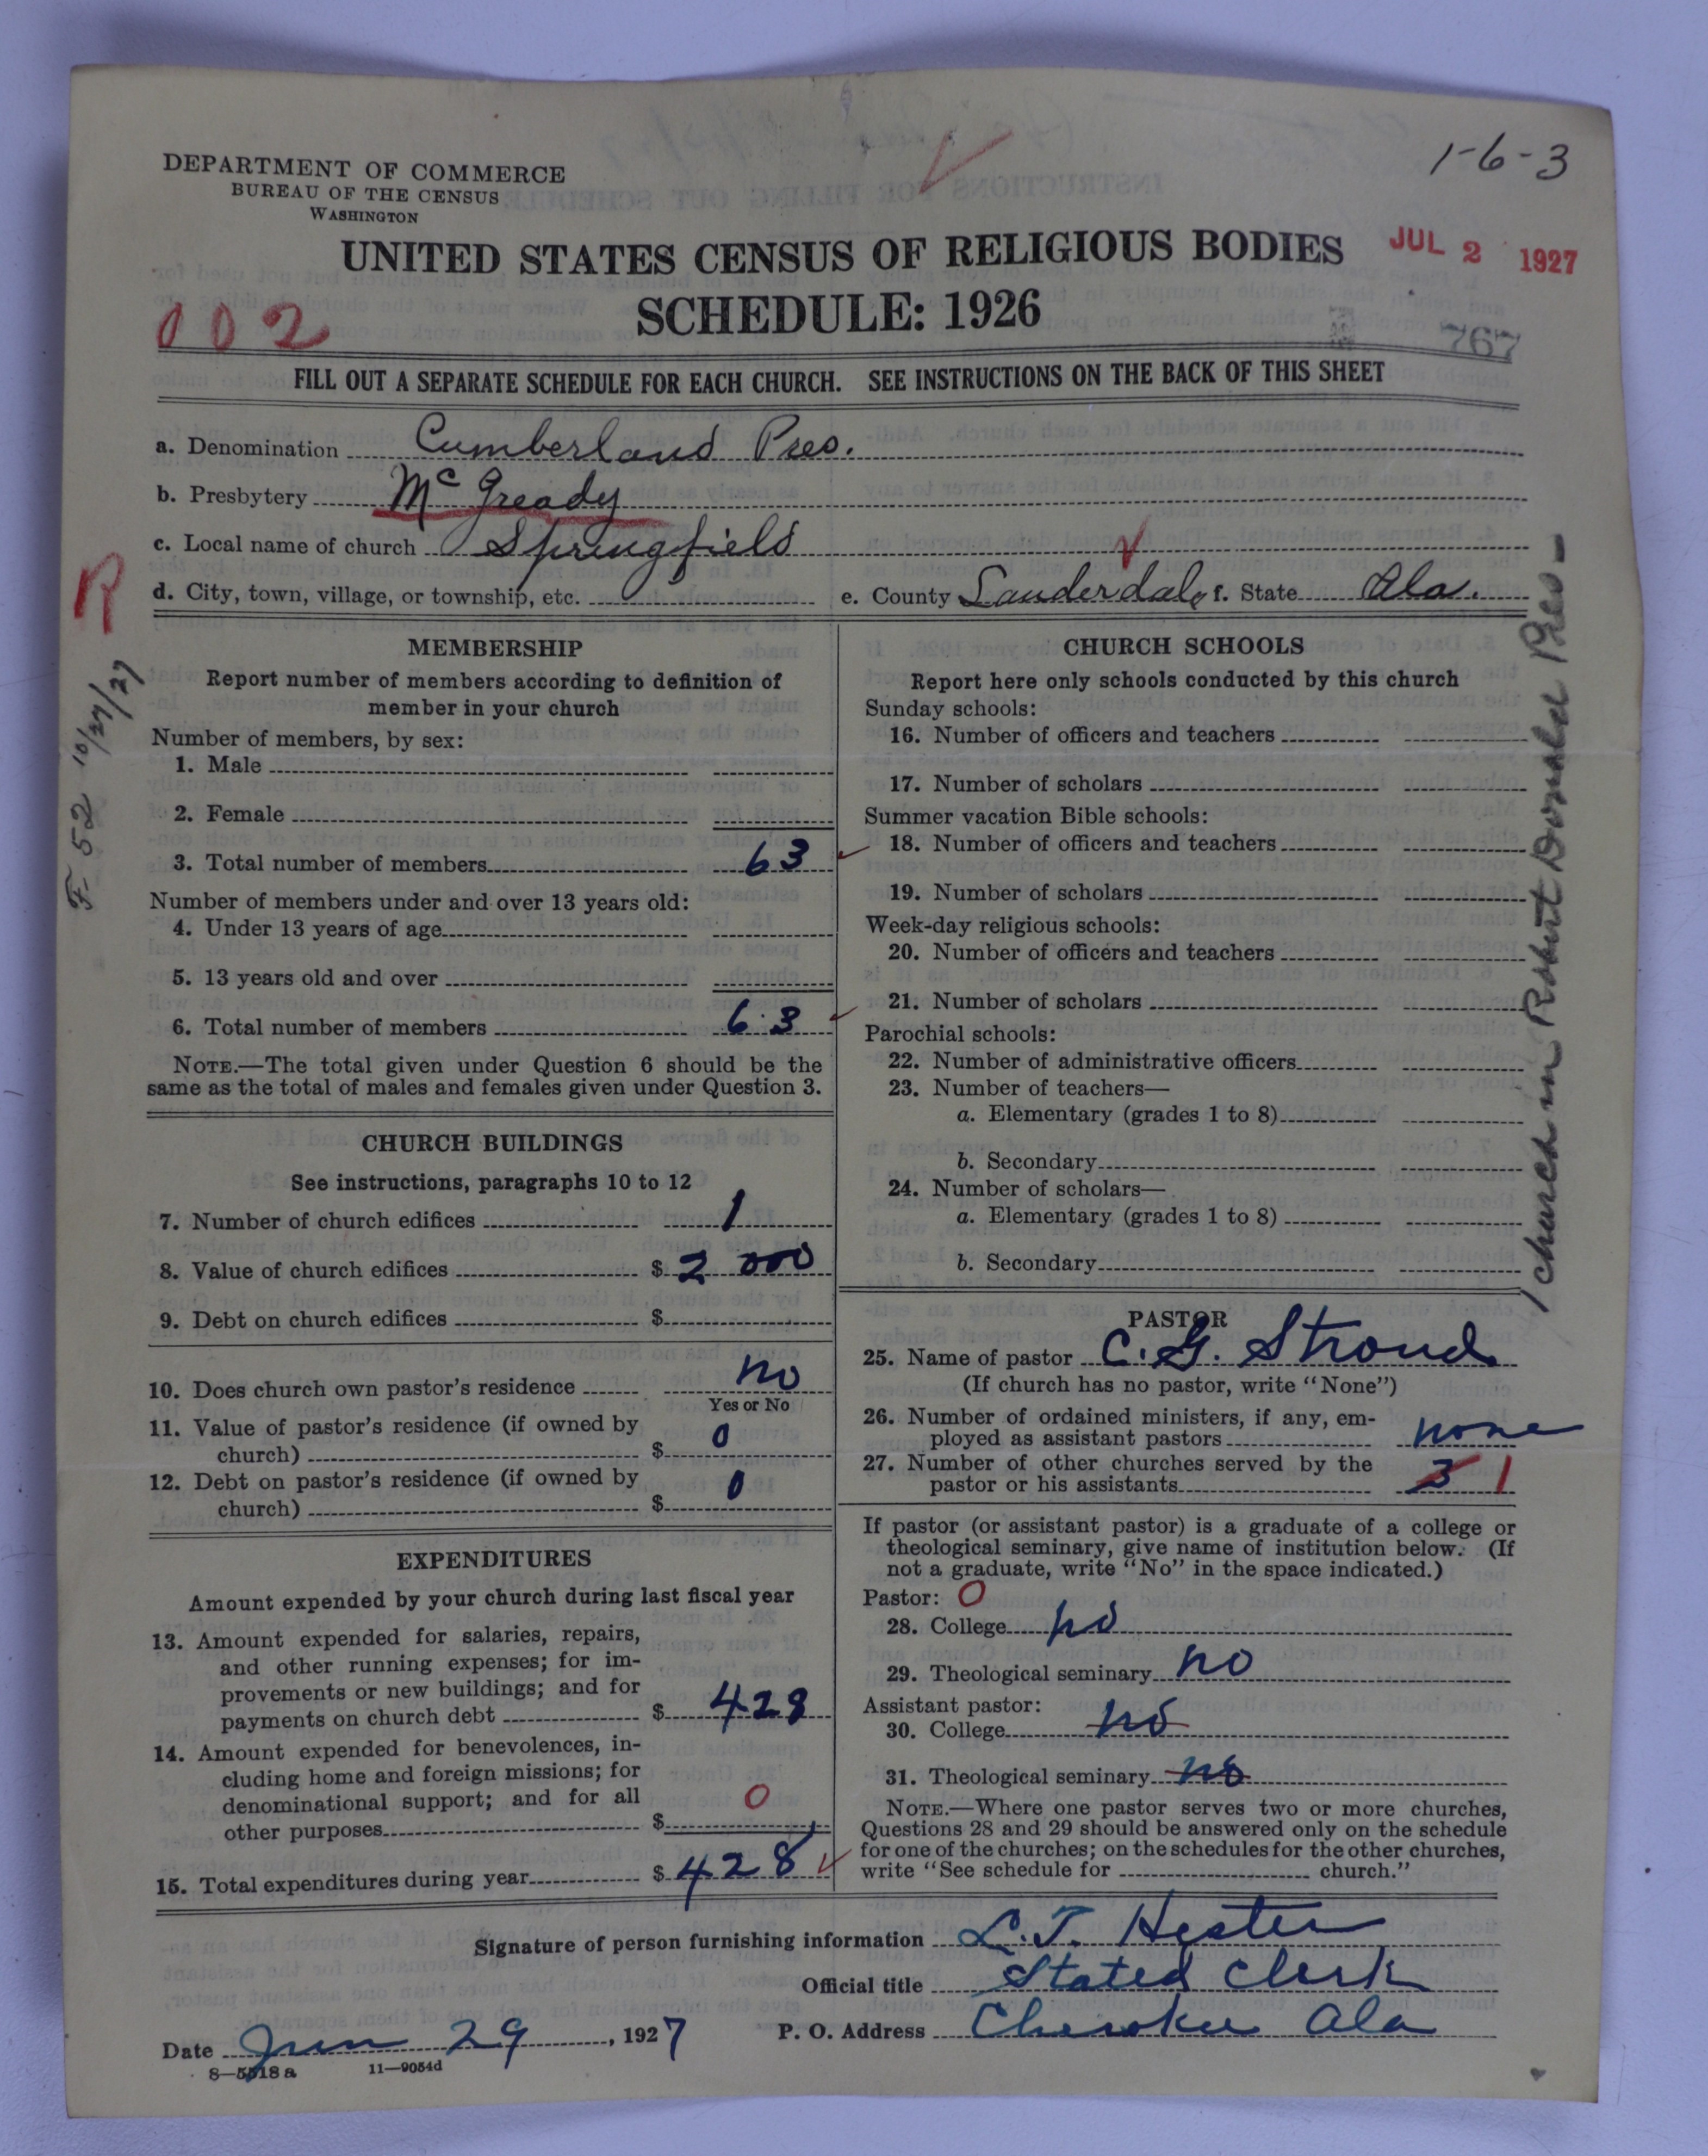 1-6-3
DEPARTMENT OF COMMERCE
BUREAU OF THE CENSUS
WASHINGTON
UNITED STATES CENSUS OF RELIGIOUS BODIES
JUL 2 1927
SCHEDULE: 1926
002
767
FILL OUT A SEPARATE SCHEDULE FOR EACH CHURCH. SEE INSTRUCTIONS ON THE BACK OF THIS SHEET
a. Denomination Cumberland Pres.
b. Presbytery McGready
c. Local name of church Springfield
d. City, town, village, or township, etc. e. County Lauderdale f. State Ala.
R
F 52 10/27/27
MEMBERSHIP
Report number of members according to definition of
member in your church
Number of members, by sex:
1. Male
2. Female
3. Total number of members 63
Number of members under and over 13 years old:
4. Under 13 years of age
5. 13 years old and over
6. Total number of members 63
NOTE.—The total given under Question 6 should be the
same as the total of males and females given under Question 3.
CHURCH BUILDINGS
See instructions, paragraphs 10 to 12
7. Number of church edifices 1
8. Value of church edifices $ 2000
9. Debt on church edifices $
10. Does church own pastor's residence no
Yes or No
11. Value of pastor's residence (if owned by
church) $ 0
12. Debt on pastor's residence (if owned by
church) $ 0
EXPENDITURES
Amount expended by your church during last fiscal year
13. Amount expended for salaries, repairs,
and other running expenses; for im-
provements or new buildings; and for
payments on church debt $ 428
14. Amount expended for benevolences, in-
cluding home and foreign missions; for
denominational support; and for all
other purposes $ 0
15. Total expenditures during year $ 428
CHURCH SCHOOLS
Report here only schools conducted by this church
Sunday schools:
16. Number of officers and teachers
17. Number of scholars
Summer vacation Bible schools:
18. Number of officers and teachers
19. Number of scholars
Week-day religious schools:
20. Number of officers and teachers
21. Number of scholars
Parochial schools:
22. Number of administrative officers
23. Number of teachers—
a. Elementary (grades 1 to 8)
b. Secondary
24. Number of scholars—
a. Elementary (grades 1 to 8)
b. Secondary
1 church in Robert Donald Pres-
PASTOR
25. Name of pastor C. G. Stroud
(If church has no pastor, write "None")
26. Number of ordained ministers, if any, em-
ployed as assistant pastors none
27. Number of other churches served by the
pastor or his assistants 3 1
If pastor (or assistant pastor) is a graduate of a college or
theological seminary, give name of institution below. (If
not a graduate, write "No" in the space indicated.)
Pastor: 0
28. College no
29. Theological seminary no
Assistant pastor:
30. College no
31. Theological seminary no
NOTE.—Where one pastor serves two or more churches,
Questions 28 and 29 should be answered only on the schedule
for one of the churches; on the schedules for the other churches,
write "See schedule for church."
Signature of person furnishing information L. T. Hester
Official title Stated Clerk
Date Jun 29, 1927 P. O. Address Cherokee Ala
8—5518 a 11—9054d